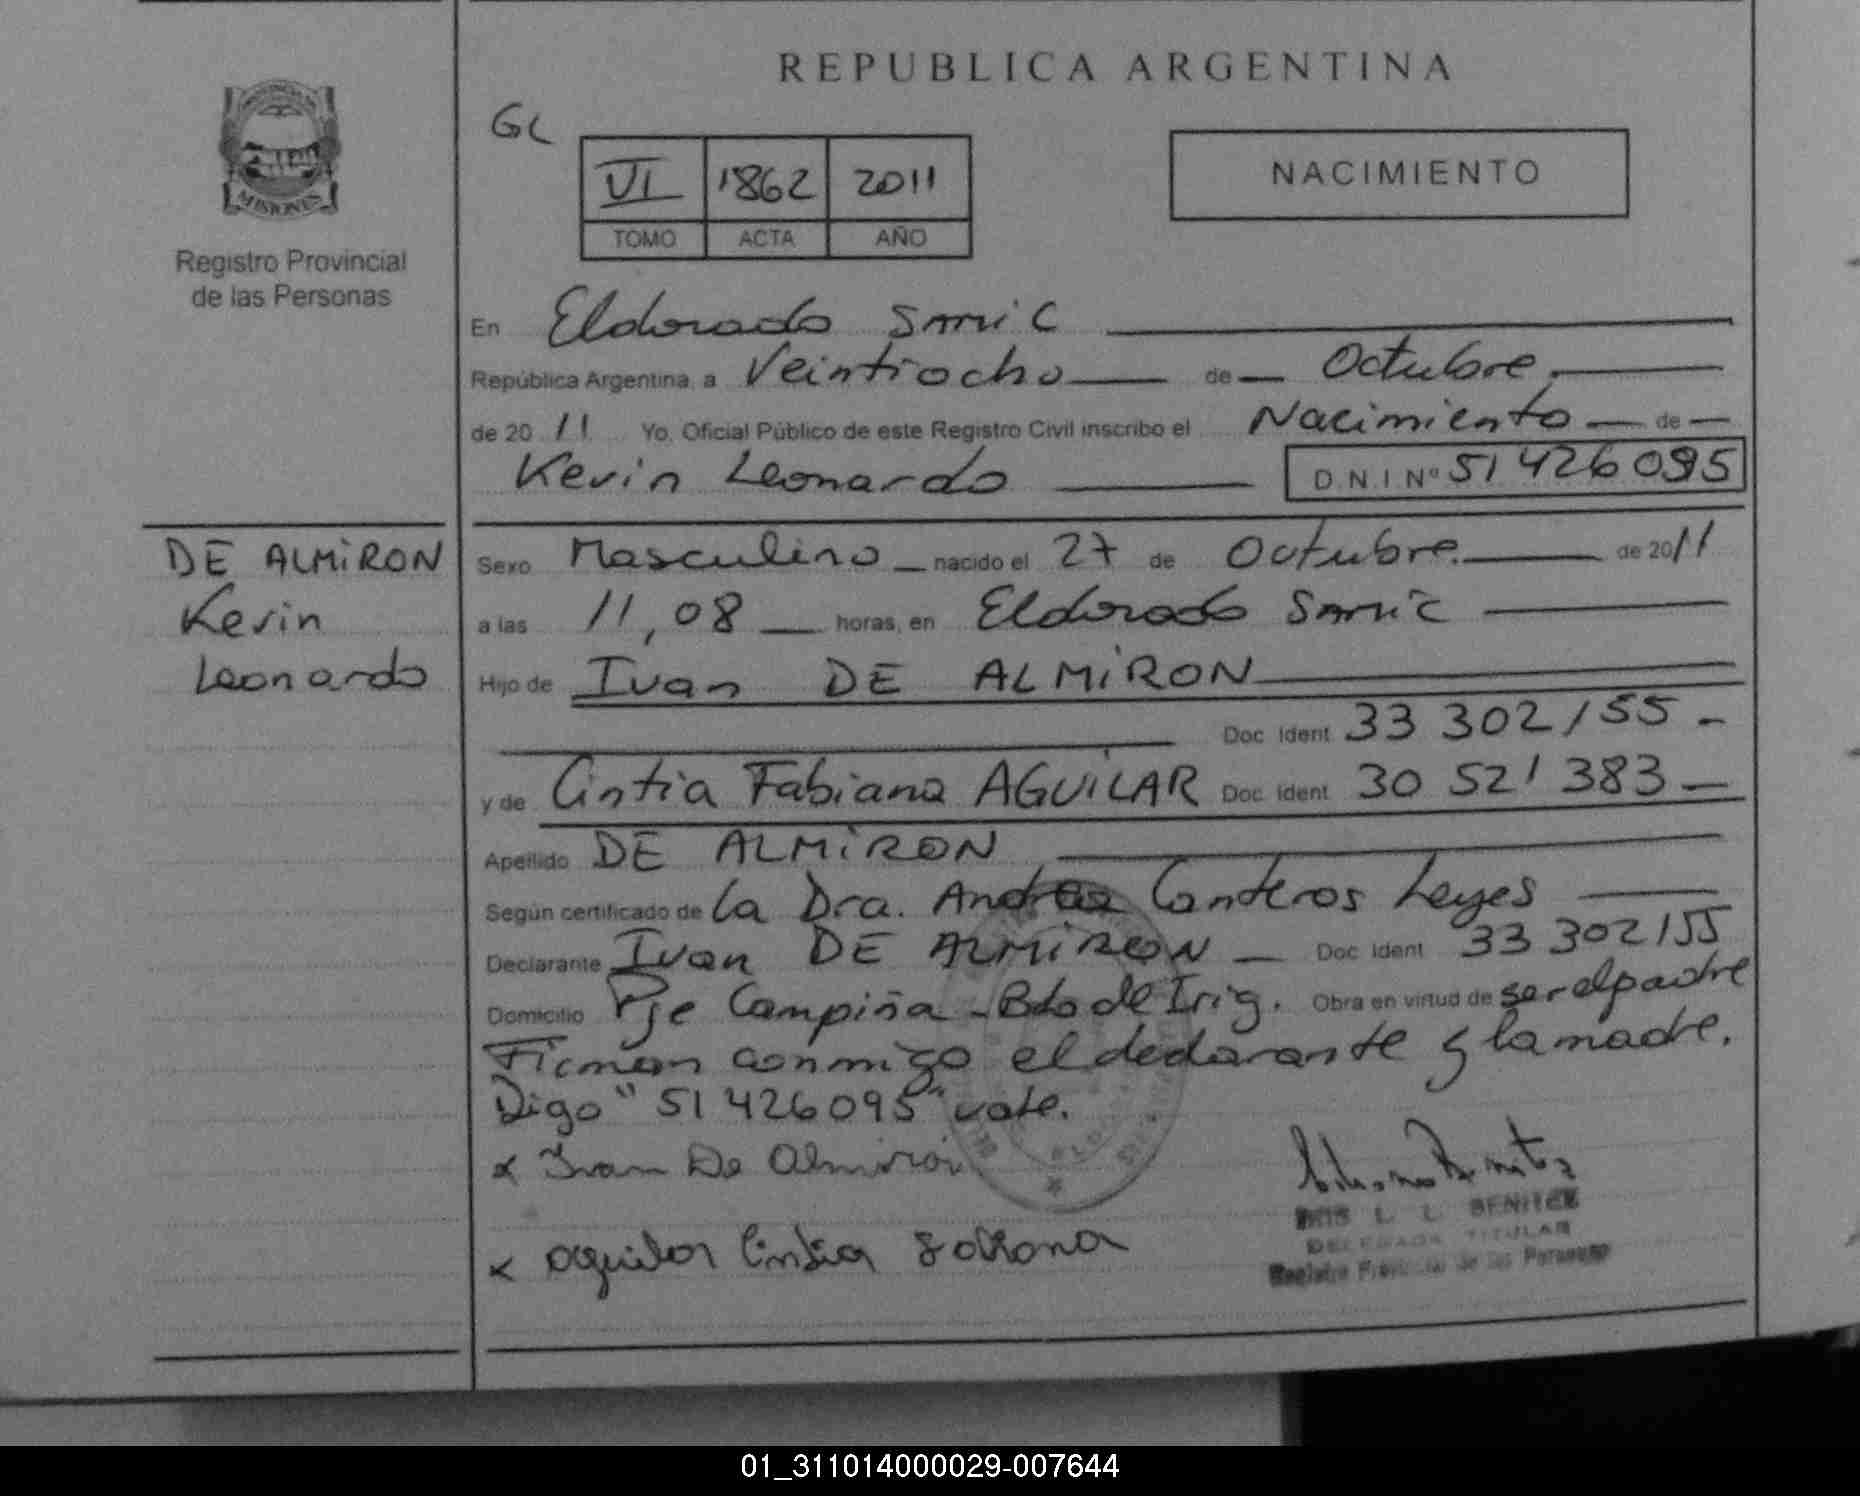 REPUBLICA ARGENTINA
GC
VI 1862 2011
TOMO ACTA AÑO
NACIMIENTO
MISIONES
Registro Provincial
de las Personas
En Eldorado SAMIC
República Argentina, a Veintiocho de Octubre.
de 2011 Yo, Oficial Público de este Registro Civil inscribo el Nacimiento de
Kevin Leonardo D.N.I Nº 51 426 095
DE ALMiRON
Kevin
Leonardo
Sexo Masculino nacido el 27 de Octubre. de 2011
a las 11,08 horas, en Eldorado SAMIC
Hijo de Ivan DE ALMiRON
Doc Ident 33 302 155
y de Cintia Fabiana AGUiLAR Doc Ident 30 521 383
Apellido DE ALMiRON
Según certificado de la Dra. Andrea Canteros Leyes
Declarante Ivan DE ALMiRON Doc Ident 33 302 155
Domicilio Pje Campiña - Bdo de Irig. Obra en virtud de ser el padre
Firman conmigo el declarante y la madre.
Digo "51 426 095" vale.
x Ivan De Almiron
x Aguilar Cintia Fabiana
L. L. BENITEZ
DELEGADA TITULAR
Registro Provincial de las Personas
01_311014000029-007644